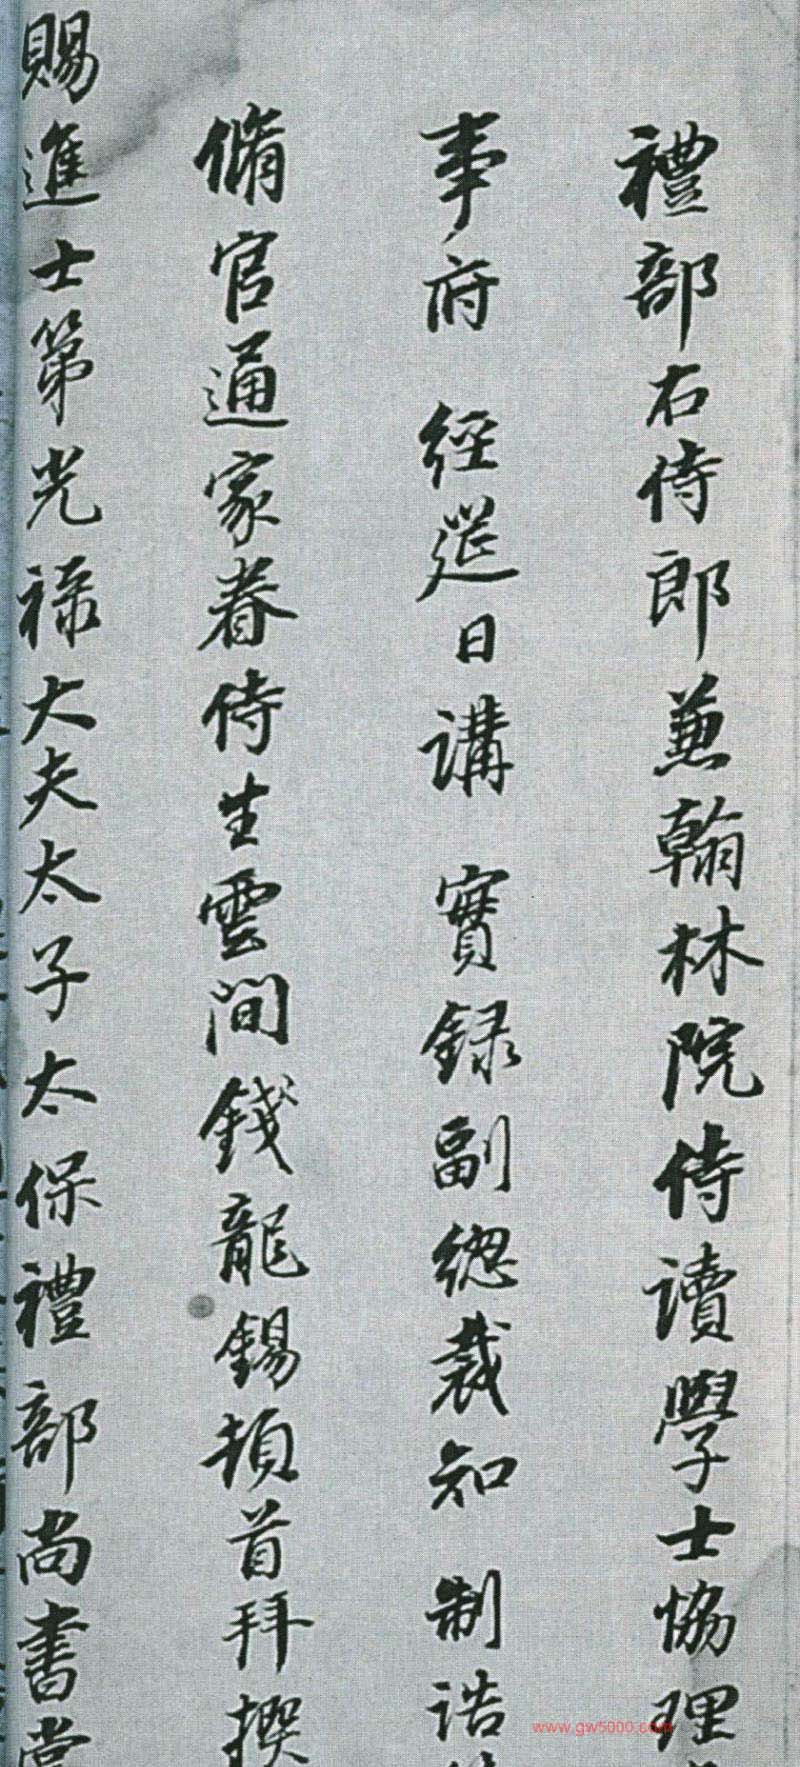 禮部右侍郎兼翰林院侍讀學士協理
事府 經筵日講 實録副總裁知 制誥
脩官通家眷侍生雲間錢龍錫頓首拜撰
賜進士第光禄大夫太子太保禮部尚書掌
www.gw5000.com